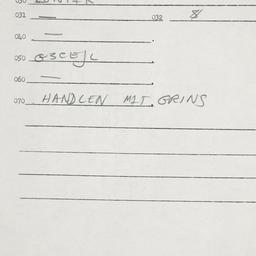 031 — 032 8/
040 —
050
060 —
070 HANDLEN MIT. GRINS